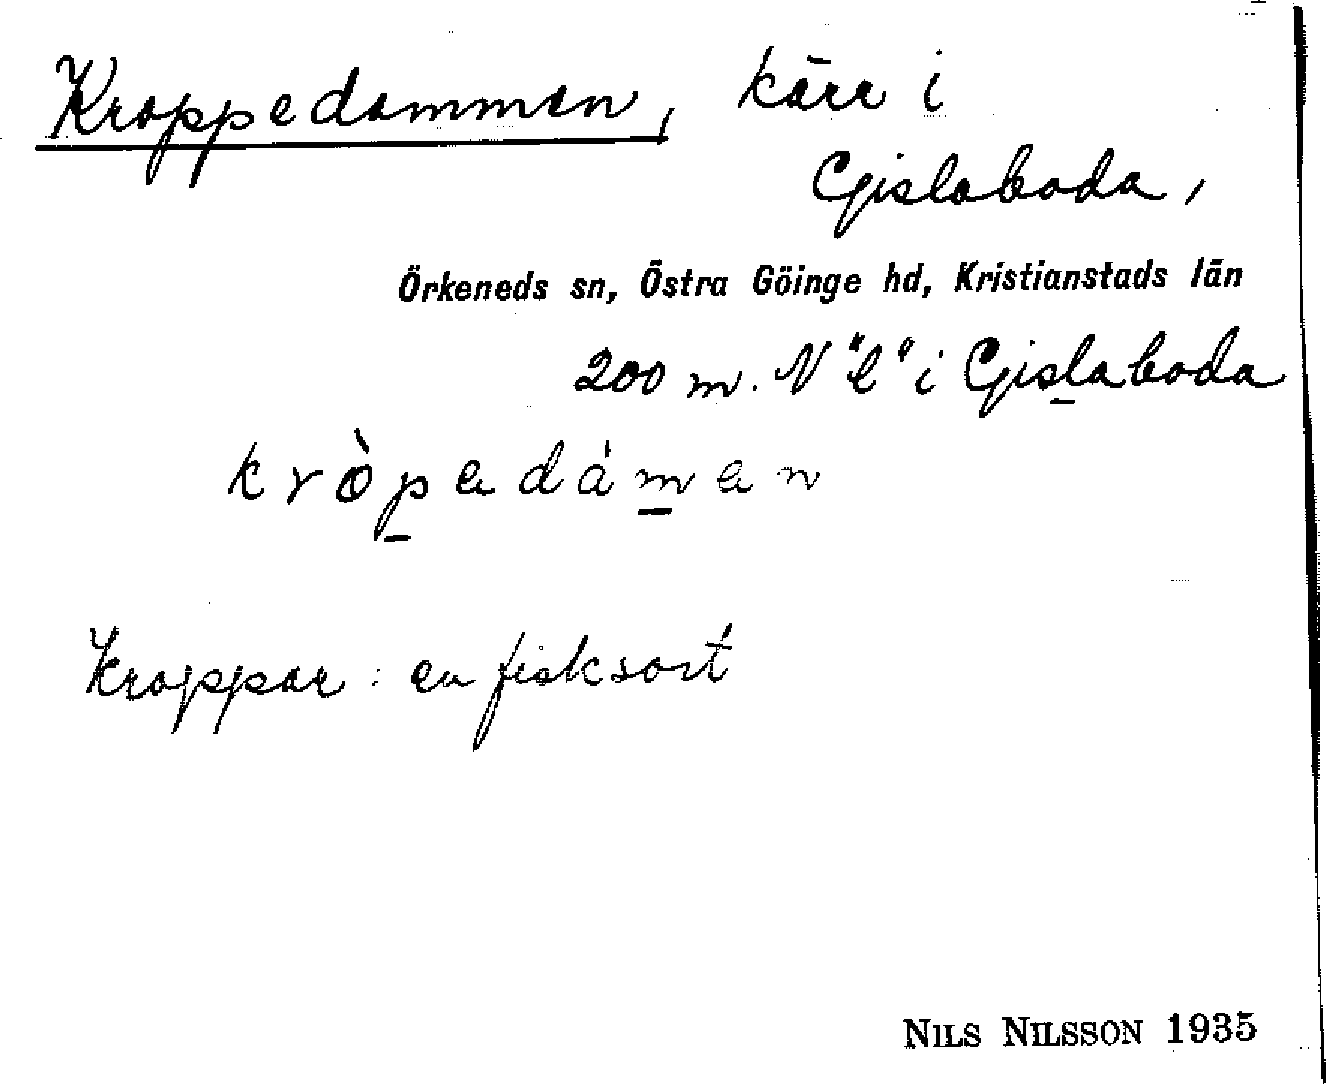 Kroppedammen, kärr i
Gislaboda,
Örkeneds sn, Östra Göinge hd, Kristianstads län
200 m. N "l" i Gislaboda
kròpedámen
Kroppar: en fisksort
NILS NILSSON 1935